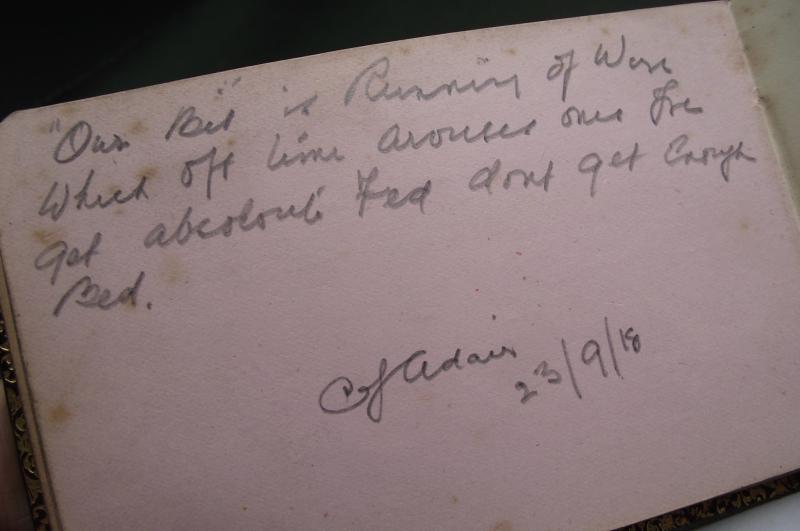 "Our Bit" is Running of Wire
Which oft time arouses ones Ire
Get absolout Fed dont get Enough
Bed.
CJ Adair
23/9/18